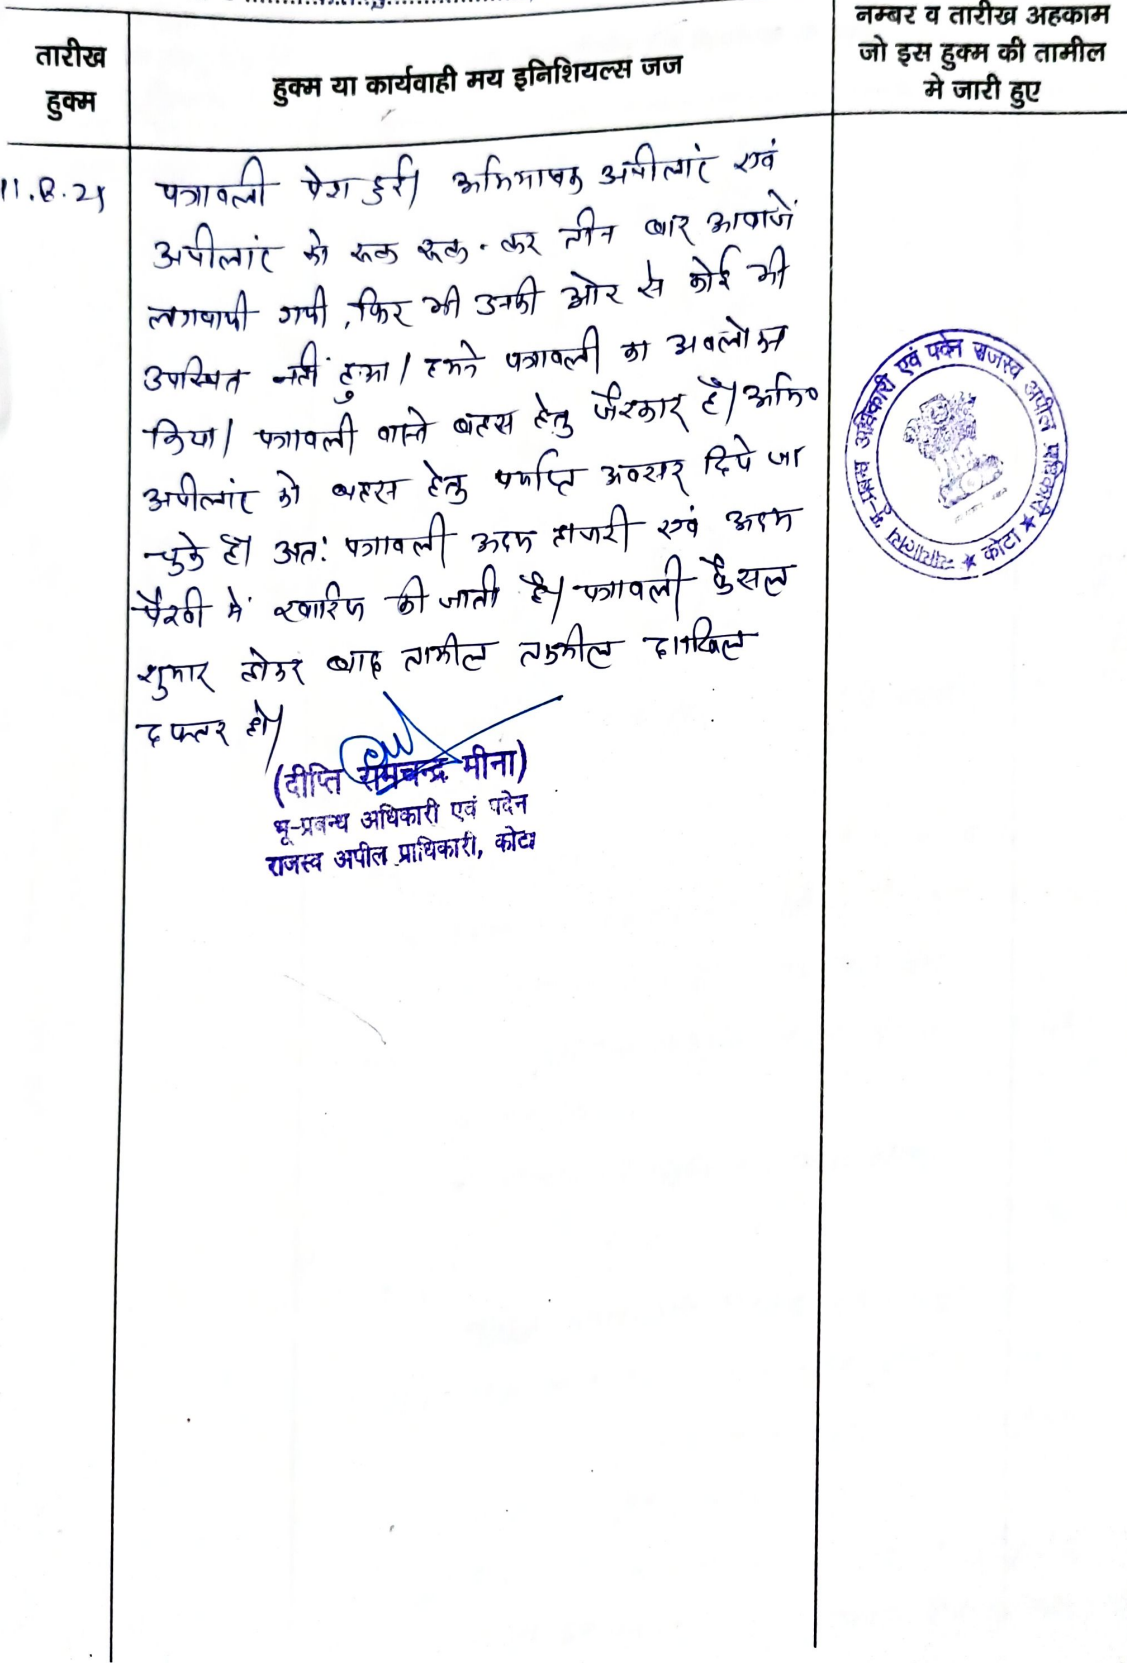 तारीख
हुक्म
हुक्म या कार्यवाही मय इनिशियल्स जज
नम्बर व तारीख अहकाम
जो इस हुक्म की तामील
मे जारी हुए
पत्रावली पेश हुई। अभिभाषक अपीलांट एवं
अपीलांट को रूक रूक-कर तीन बार आवाजें
लगवायी गयी, फिर भी उनकी ओर से कोई भी
उपस्थित नहीं हुआ। हमने पत्रावली का अवलोकन
किया। पत्रावली वास्ते बहस हेतु जैरकार है। अभि०
अपीलांट को बहस हेतु पर्याप्त अवसर दिये जा
चुके है। अतः पत्रावली अदम हाजरी एवं अदम
पैरवी में खारिज की जाती है। पत्रावली फैसल
शुमार होकर बाद तामील तकमील दाखिल
दफ्तर हो।
(दीप्ति रामचन्द्र मीना)
भू-प्रबन्ध अधिकारी एवं पदेन
राजस्व अपील प्राधिकारी, कोटा
न्यायालय भू-प्रबन्ध अधिकारी एवं पदेन राजस्व अपील प्राधिकारी ★ कोटा ★